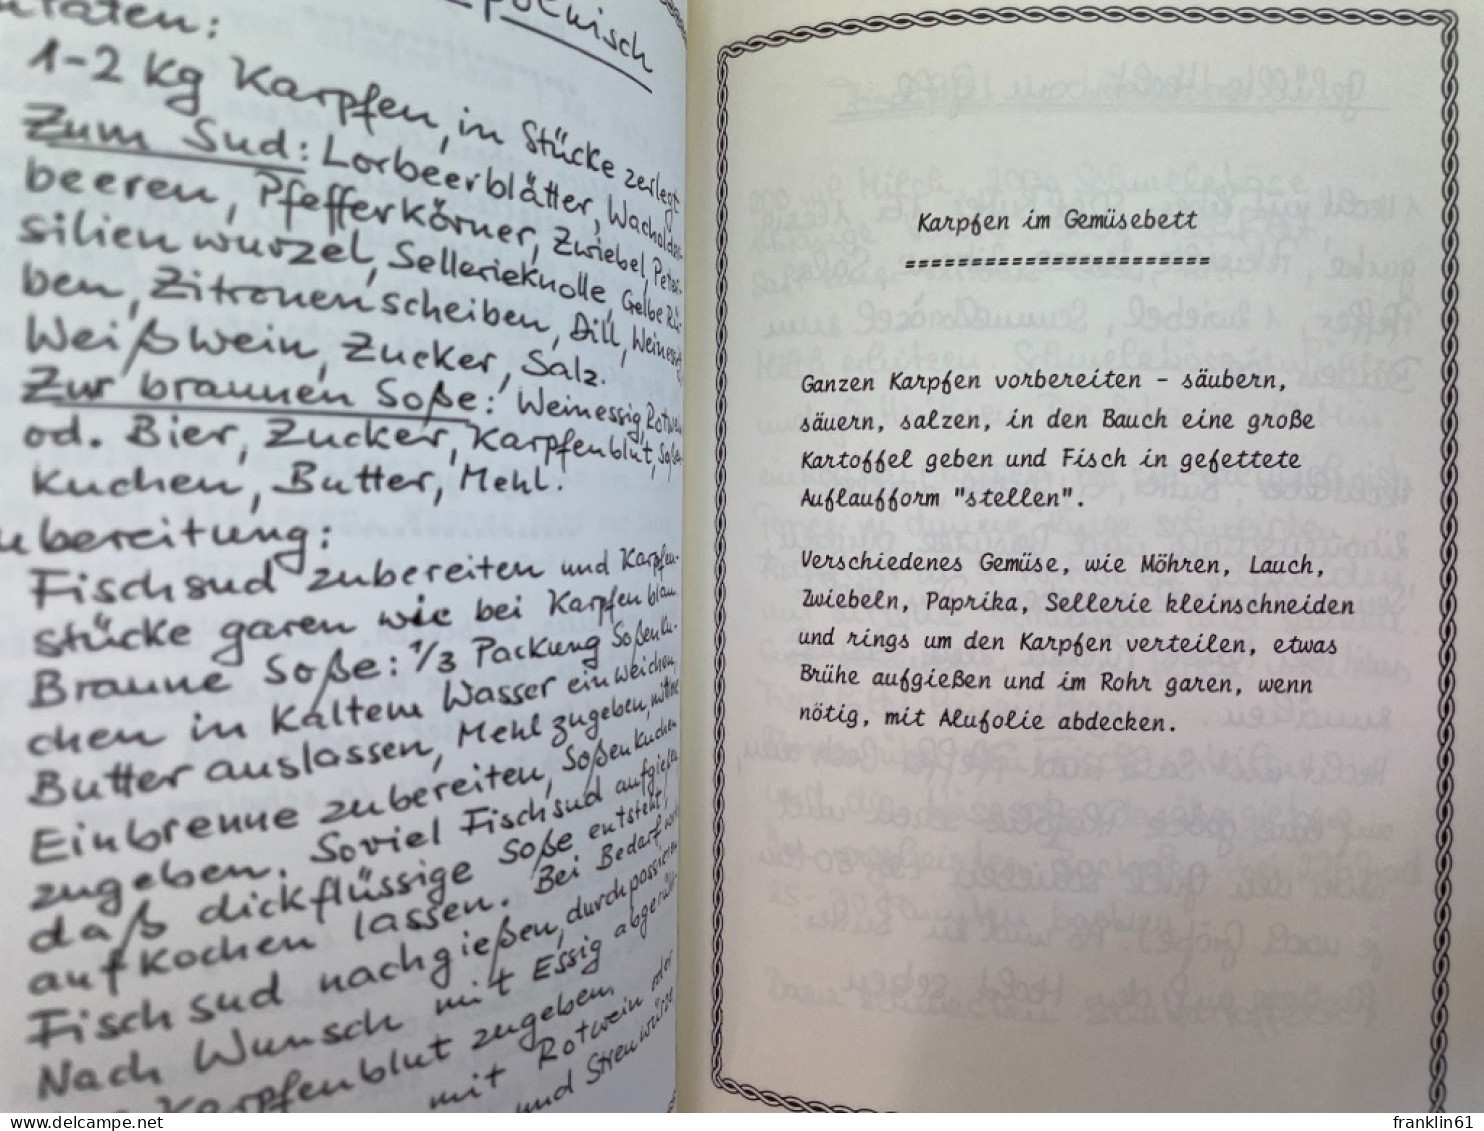 polnisch
taten:
1-2 kg Karpfen, in Stücke zerlegt
Zum Sud: Lorbeerblätter, Wacholder-
beeren, Pfefferkörner, Zwiebel, Peter-
silienwurzel, Sellerieknolle, Gelbe Rü-
ben, Zitronenscheiben, Dill, Weinessig
Weißwein, Zucker, Salz.
Zur braunen Soße: Weinessig, Rotwein
od. Bier, Zucker, Karpfenblut, Soßen-
kuchen, Butter, Mehl.
ubereitung:
Fischsud zubereiten und Karpfen-
stücke garen wie bei Karpfen blau
Braune Soße: 1/3 Packung Soßenku-
chen in kaltem Wasser einweichen,
Butter auslassen, Mehl zugeben,
Einbrenne zubereiten, Soßenkuchen
zugeben. Soviel Fischsud aufgießen,
daß dickflüssige Soße entsteht,
aufkochen lassen. Bei Bedarf
Fischsud nachgießen, durchpassieren
Nach Wunsch mit Essig
Karpfenblut zugeben
mit Rotwein oder
und Streuwürze
Karpfen im Gemüsebett
=======================
Ganzen Karpfen vorbereiten - säubern,
säuern, salzen, in den Bauch eine große
Kartoffel geben und Fisch in gefettete
Auflaufform "stellen".
Verschiedenes Gemüse, wie Möhren, Lauch,
Zwiebeln, Paprika, Sellerie kleinschneiden
und rings um den Karpfen verteilen, etwas
Brühe aufgießen und im Rohr garen, wenn
nötig, mit Alufolie abdecken.
franklin61